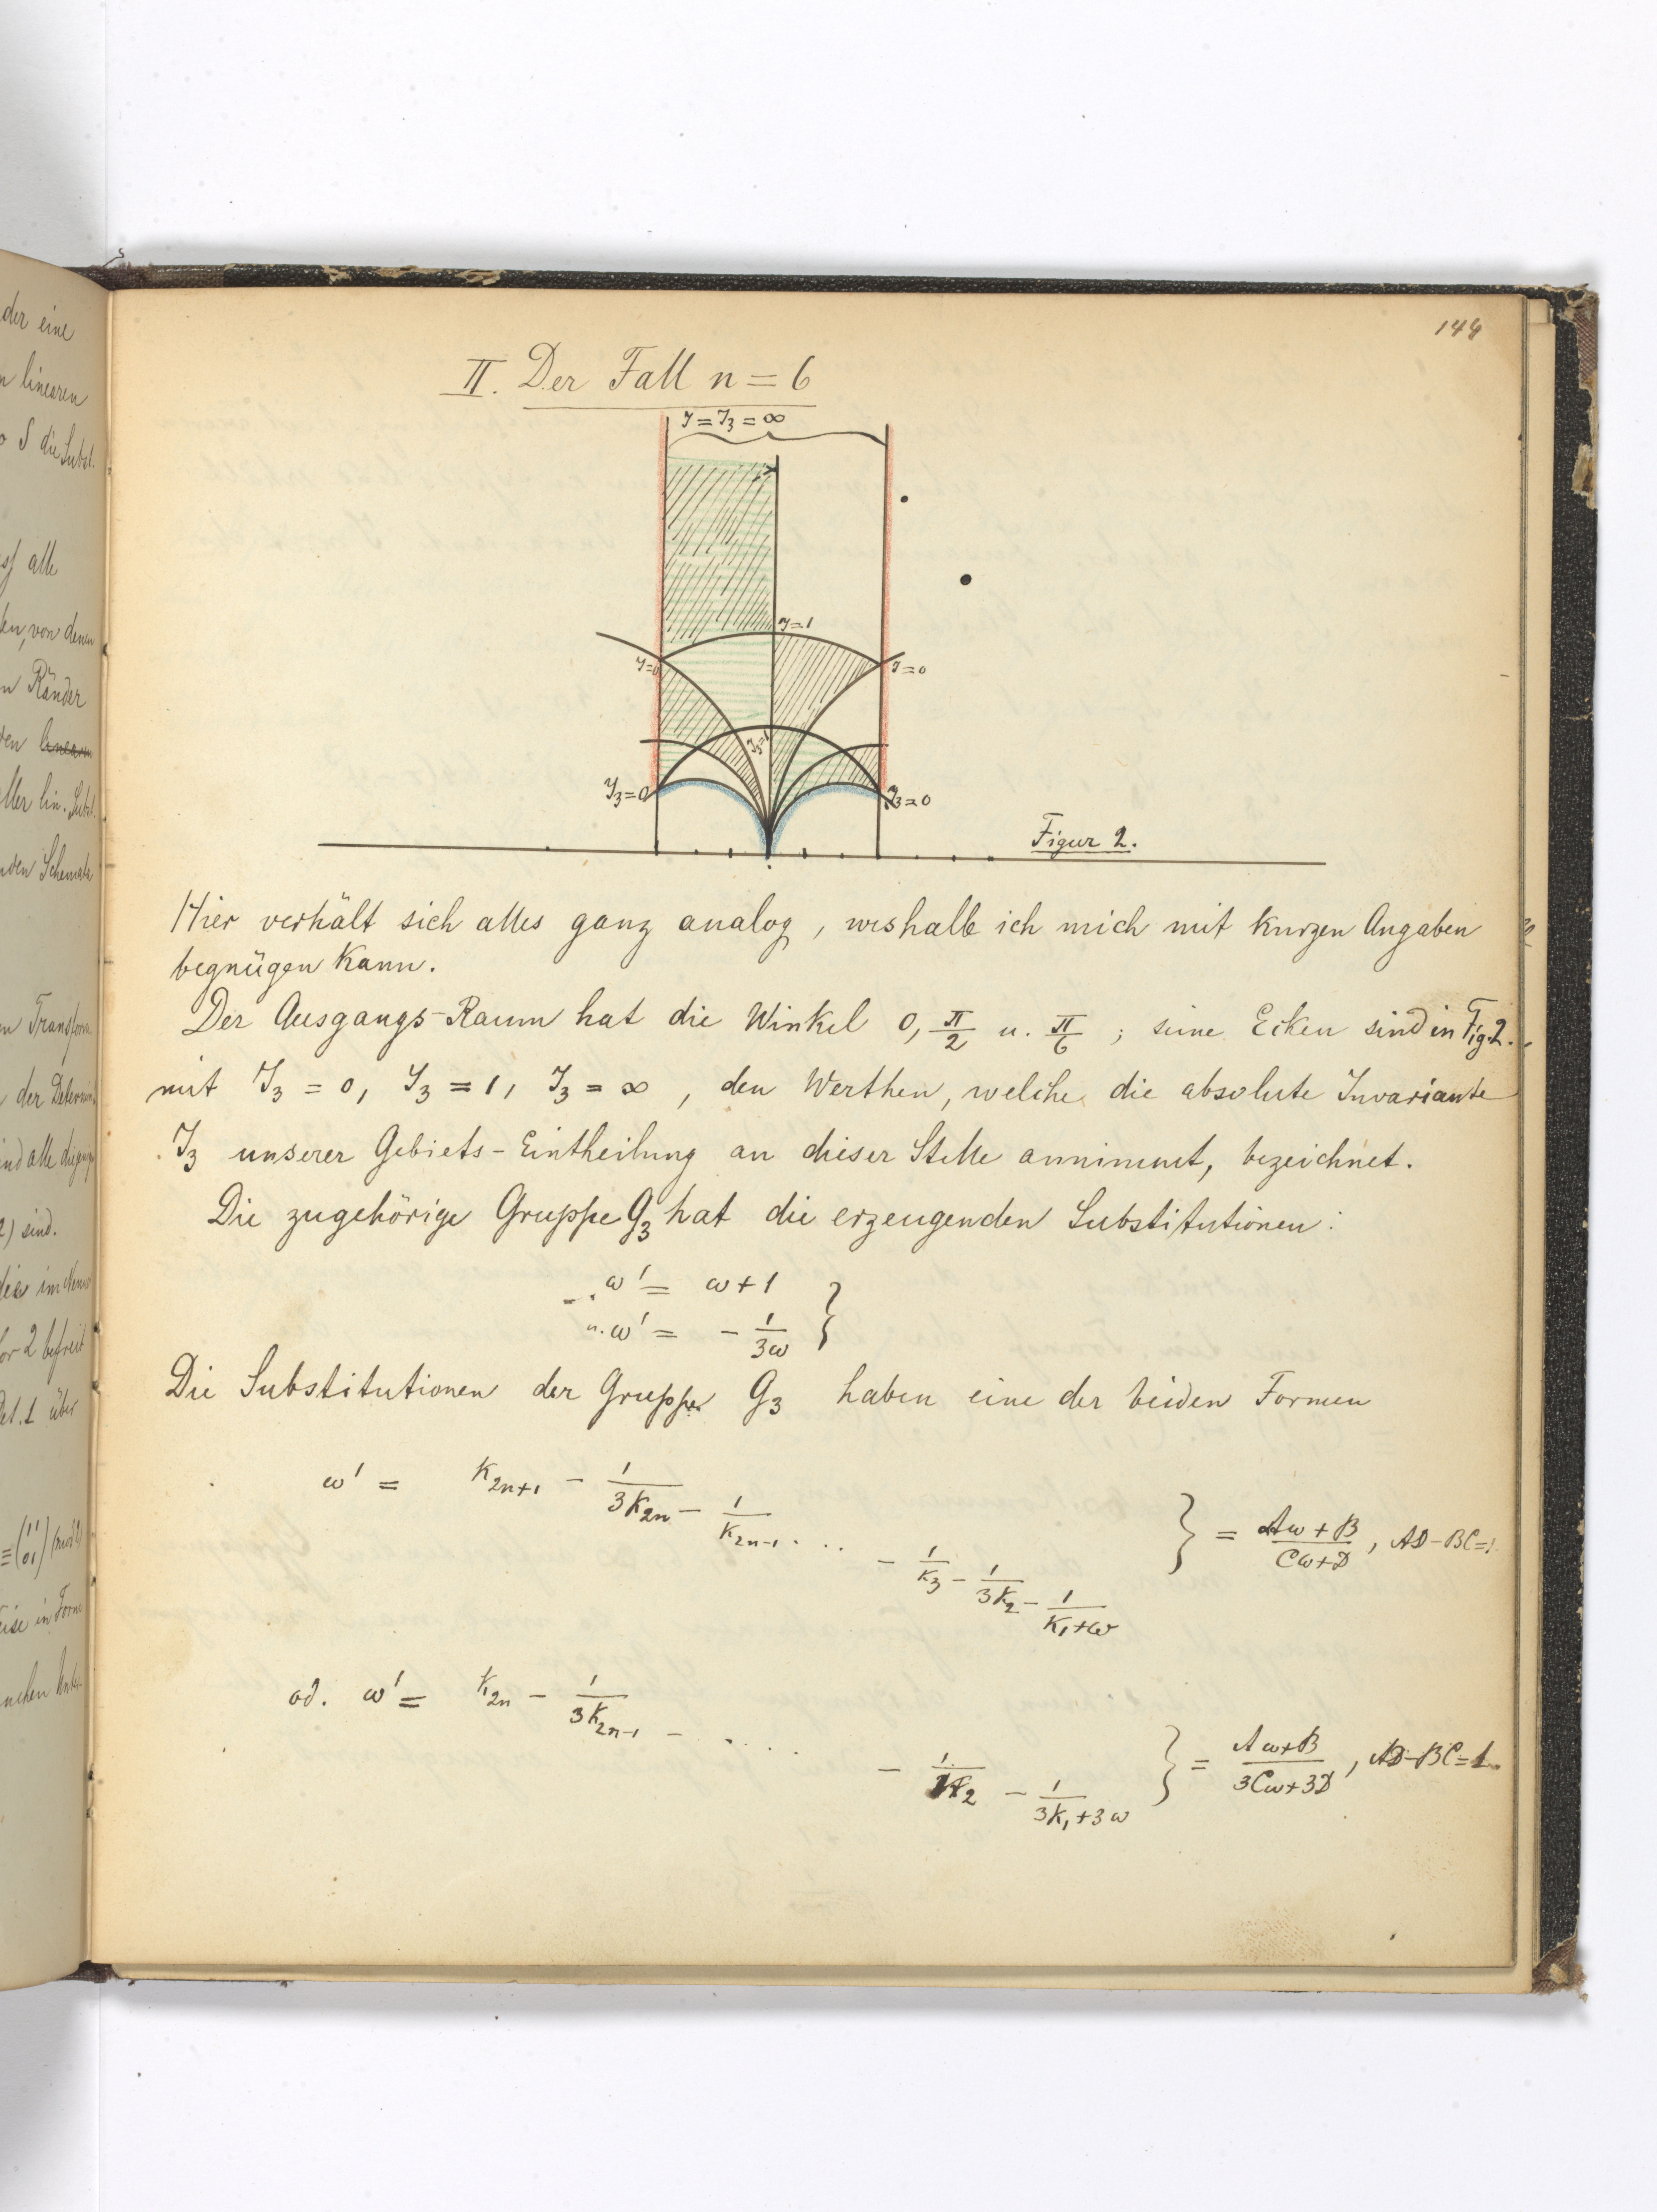 der eine
linearen
S die Subst.
alle
von denen
Ränder
linearen
aller lin. Subst.
den Schemata
Transform.
der Determin.
sind alle
2) sind.
im Nenner
2 befreit
Det. 1 über
≡ (11 01) (mod 2)
in Form
144
II. Der Fall n = 6
J = J₃ = ∞
J=1
J=0
J=0
J₃=1
J₃=0
J₃=0
Figur 2.
Hier verhält sich alles ganz analog, weshalb ich mich mit kurzen Angaben
begnügen kann.
Der Ausgangs-Raum hat die Winkel 0, π/2 u. π/6 ; seine Ecken sind in Fig. 2.
mit J₃ = 0, J₃ = 1, J₃ = ∞ , den Werthen, welche die absolute Invariante
J₃ unserer Gebiets-Eintheilung an dieser Stelle annimmt, bezeichnet.
Die zugehörige Gruppe G₃ hat die erzeugenden Substitutionen:
ω' = ω + 1
u. ω' = - 1/3ω }
Die Substitutionen der Gruppe G₃ haben eine der beiden Formen
ω' = K₂ₙ₊₁ - 1/3K₂ₙ - 1/K₂ₙ₋₁ .... - 1/K₃ - 1/3K₂ - 1/K₁+ω } = Aω+B/Cω+D , AD-BC=1
od. ω' = K₂ₙ - 1/3K₂ₙ₋₁ - ..... - 1/K₂ - 1/3K₁+3ω } = Aω+B/3Cω+3D , AD-BC=1.